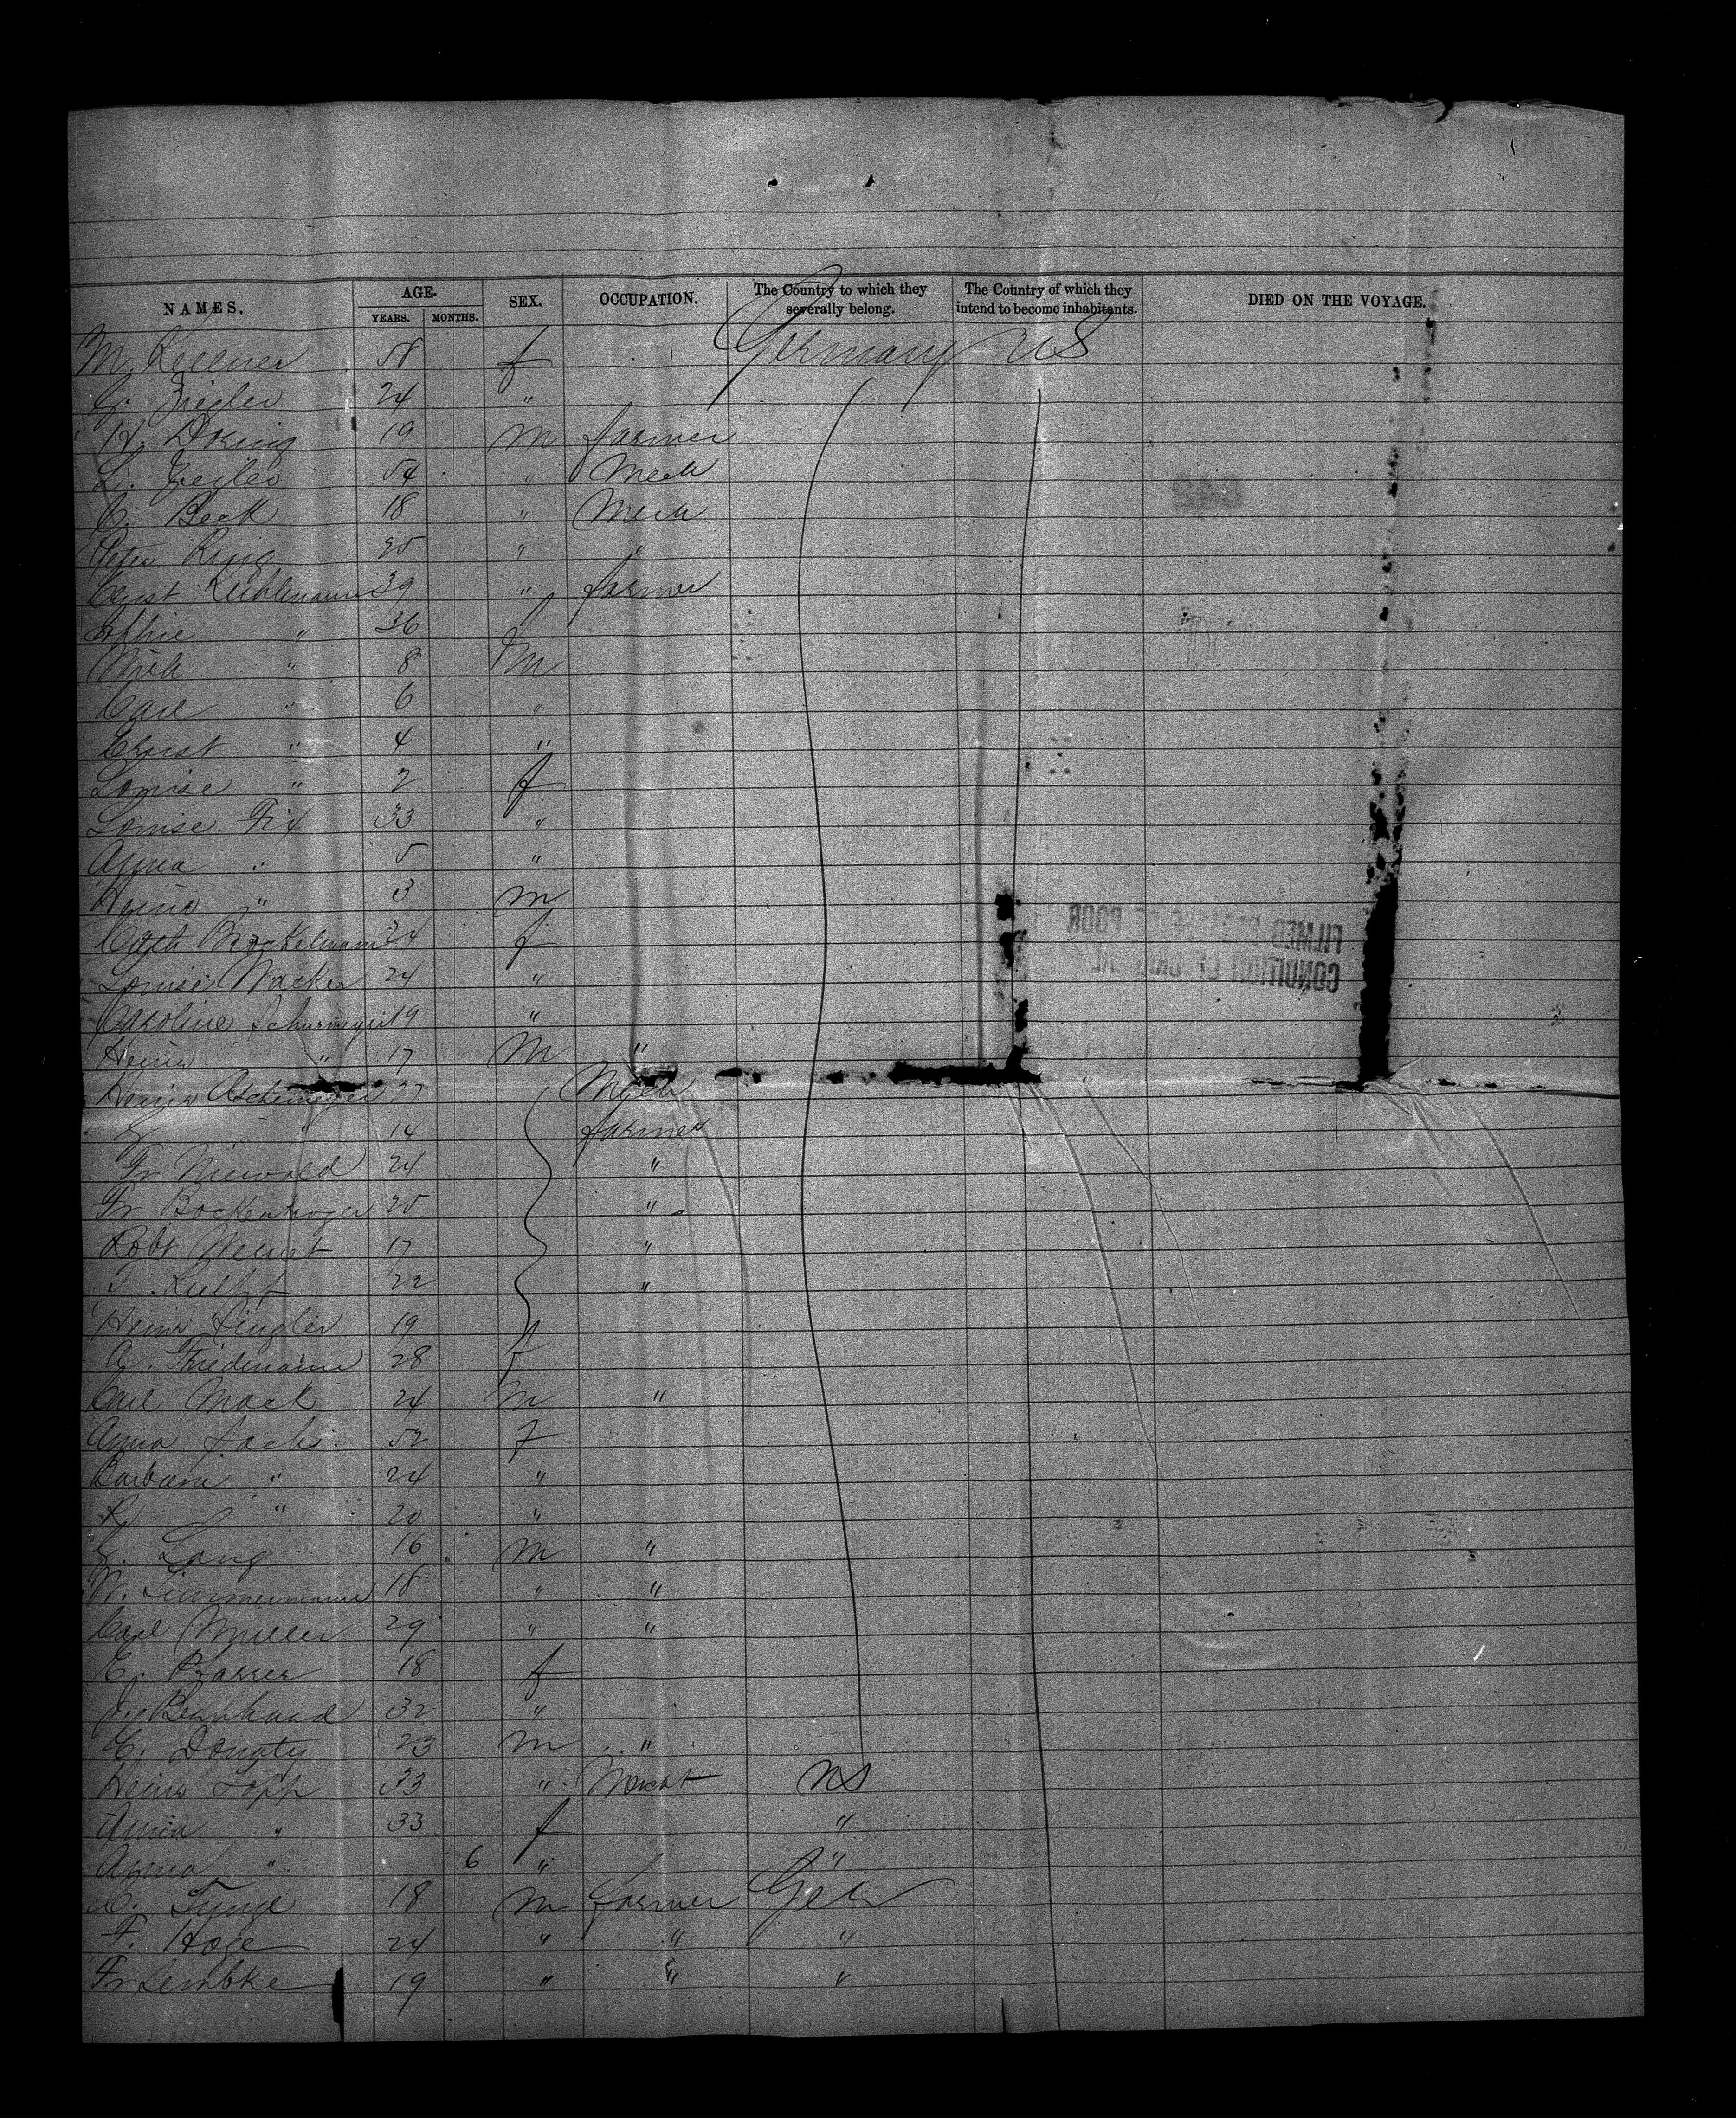 NAMES. AGE. SEX. OCCUPATION. The Country to which they severally belong. The Country of which they intend to become inhabitants. DIED ON THE VOYAGE.
YEARS. MONTHS.
M. Kellner 58 f Germany U S
G. Ziegler 24 "
H. Doring 19 m farmer
L. Ziegler 54 " Mech
C. Beck 18 " Mech
Peter Ring 25 " "
Ernst Kuhlmann 39 " farmer
Sophie " 36
Mich " 8 m
Carl " 6 "
Ernst " 4 "
Louise " 2 f
Louise Fix 33 "
Anna " 5 "
Heinr " 3 m
Cath Brockelmann 24 f
Louise Wacker 24 "
Caroline Schurmeyer 19 "
Heinr " 17 m "
Heinr Aschemeyer 27 Mech
" 14 farmer
Fr Niewald 24 "
Fr Bockenkroger 25 "
Robt 17 "
22 "
Heinr 19
A. Thiedemann 28 f
Carl Mack 24 m "
Anna Sach 52 f
Barbara " 24 "
R. " 20 "
G. Lang 16 m "
W. Zimmermann 18 " "
Carl Muller 29 " "
E. Pfarrer 18 f
J. Bernhard 32 "
C. Donaty 23 m "
Heinr Popp 33 " Mercht US
Anna " 33 f "
Anna " 6 " "
C. 18 m farmer Ger
F. Hoge 24 " " "
Fr Lembke 19 " " "
FILMED BECAUSE OF POOR
CONDITION OF ORIGINAL